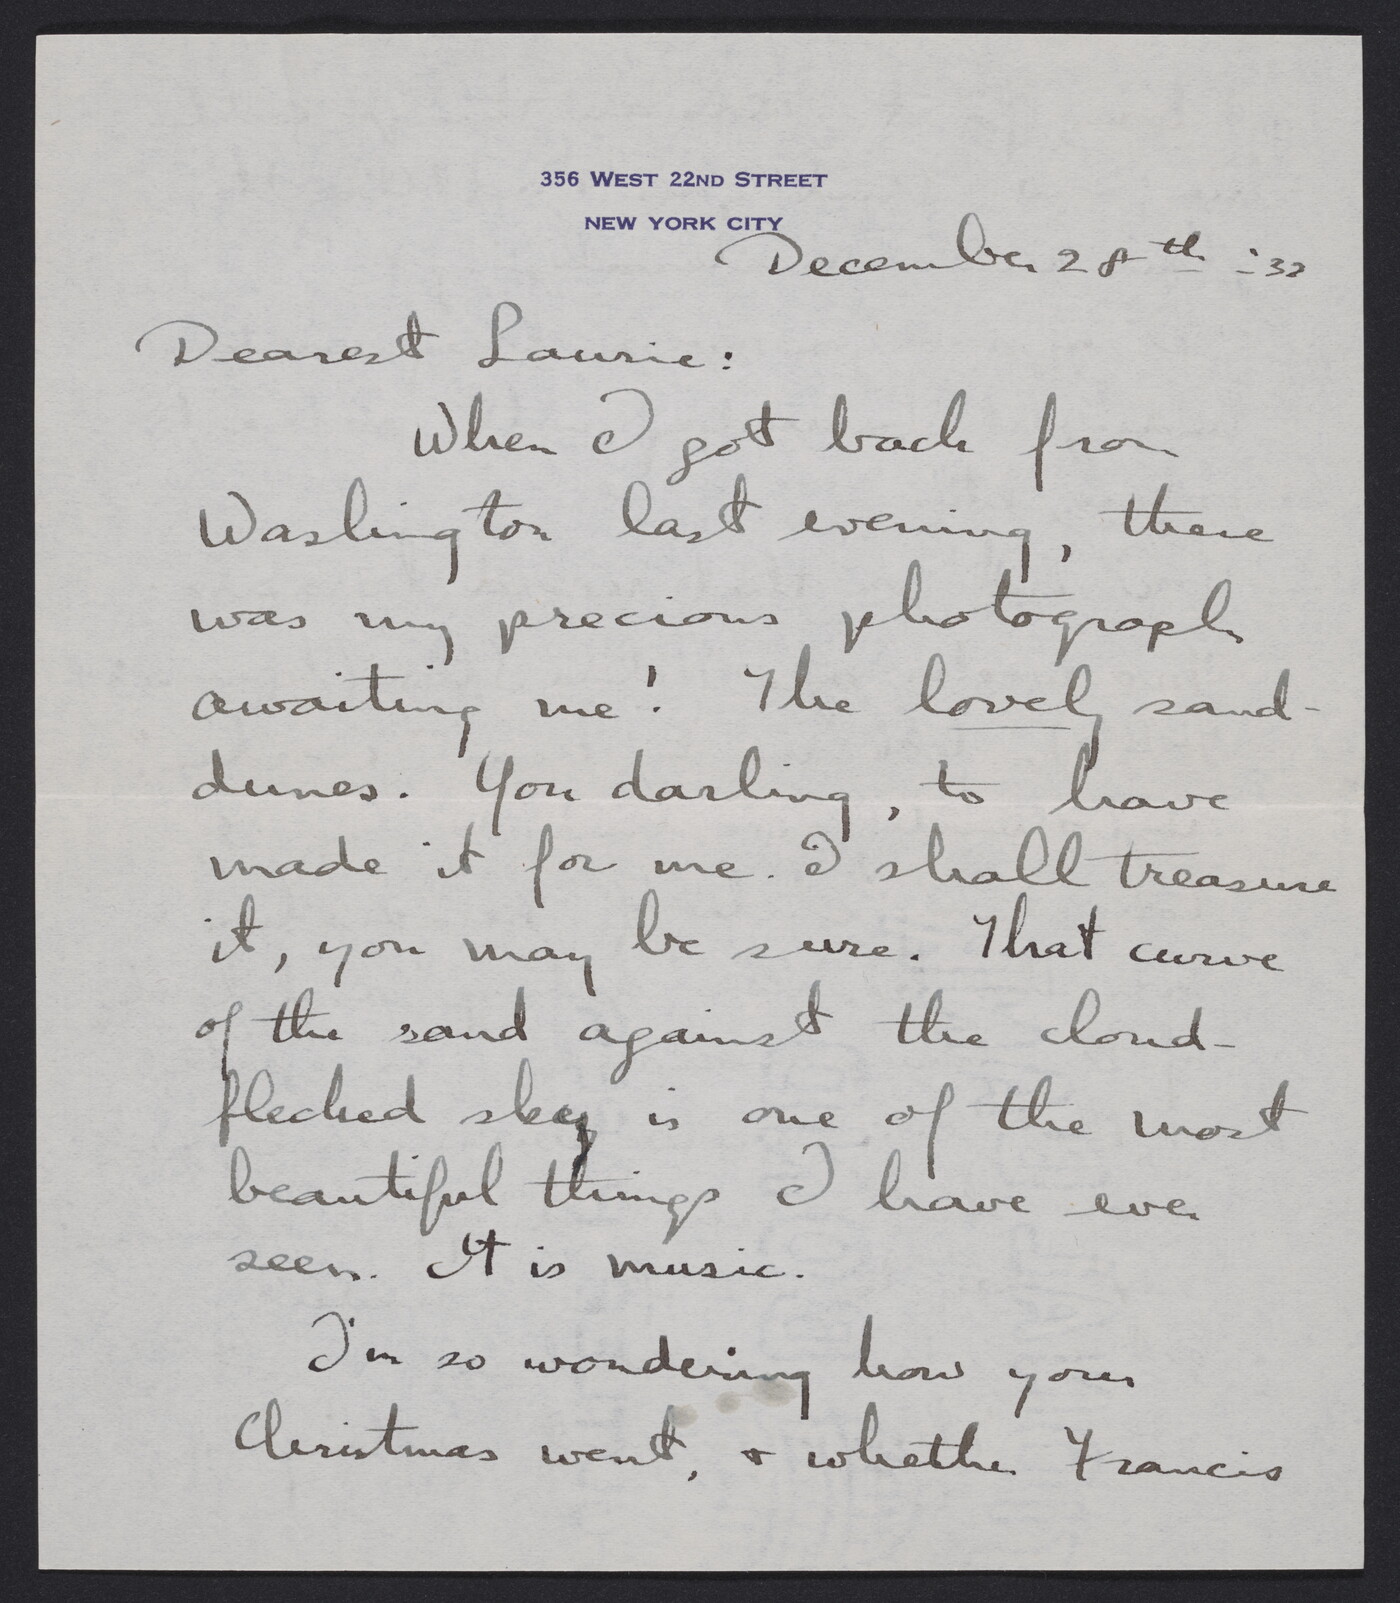 356 WEST 22ND STREET
NEW YORK CITY
December 28th '32
Dearest Laurie:
When I got back from
Washington last evening, there
was my precious photograph
awaiting me! The lovely sand-
dunes. You darling, to have
made it for me. I shall treasure
it, you may be sure. That curve
of the sand against the cloud-
flecked sky is one of the most
beautiful things I have ever
seen. It is music.
I'm so wondering how your
Christmas went, & whether Francis